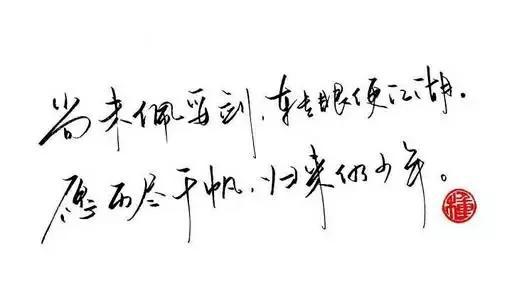 尚未佩妥剑，转眼便江湖。
愿历尽千帆，归来仍少年。
種